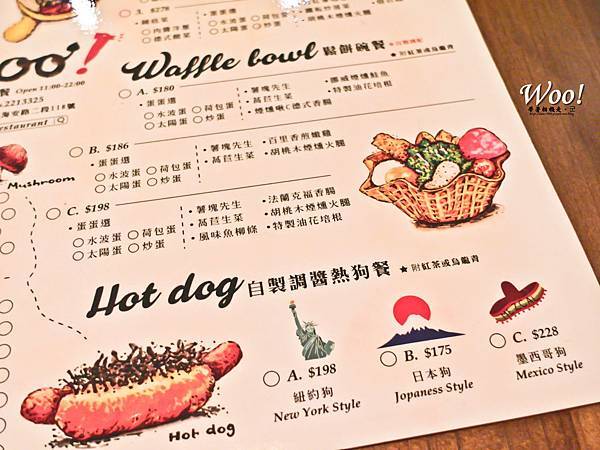 3. $278
德式餐菜
太陽蛋 ○炒蛋
oo!
餐 Open 11:00-22:00
.2213325
海安路二段118號
estaurant
Mushroom
Waffle bowl 鬆餅碗餐
★附紅茶或烏龍青
A. $180
• 蛋蛋選
○水波蛋 ○荷包蛋
○太陽蛋 ○炒蛋
• 薯塊先生
• 萵苣生菜
• 煙燻啾C德式香腸
• 挪威煙燻鮭魚
• 特製油花培根
B. $186
• 蛋蛋選
○水波蛋 ○荷包蛋
○太陽蛋 ○炒蛋
• 薯塊先生
• 萵苣生菜
• 百里香煎嫩雞
• 胡桃木煙燻火腿
C. $198
• 蛋蛋選
○水波蛋 ○荷包蛋
○太陽蛋 ○炒蛋
• 薯塊先生
• 萵苣生菜
• 風味魚柳條
• 法蘭克福香腸
• 胡桃木煙燻火腿
• 特製油花培根
Hot dog 自製調醬熱狗餐 ★附紅茶或烏龍青
A. $198
紐約狗
New York Style
B. $175
日本狗
Jopaness Style
C. $228
墨西哥狗
Mexico Style
Hot dog
Woo!